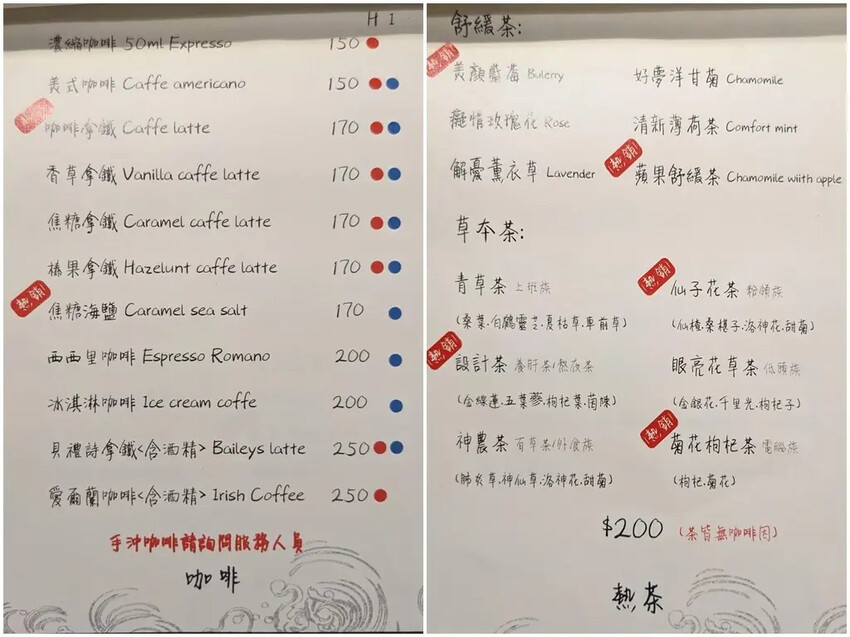 H I
濃縮咖啡 50ml Expresso 150
美式咖啡 Caffe americano 150
咖啡拿鐵 Caffe latte 170
香草拿鐵 Vanilla caffe latte 170
焦糖拿鐵 Caramel caffe latte 170
榛果拿鐵 Hazelunt caffe latte 170
熱銷
焦糖海鹽 Caramel sea salt 170
西西里咖啡 Espresso Romano 200
冰淇淋咖啡 Ice cream coffe 200
貝禮詩拿鐵<含酒精> Baileys latte 250
愛爾蘭咖啡<含酒精> Irish Coffee 250
手沖咖啡請詢問服務人員
咖啡
舒緩茶:
熱銷
美顏藍莓 Bulerry 好夢洋甘菊 Chamomile
癡情玫瑰花 Rose 清新薄荷茶 Comfort mint
熱銷
解憂薰衣草 Lavender 蘋果舒緩茶 Chamomile wiith apple
草本茶:
熱銷
青草茶 上班族 仙子花茶 粉領族
(桑葉.白鶴靈芝.夏枯草.車前草) (仙楂.桑椹子.洛神花.甜菊)
熱銷
設計茶 養肝茶/熬夜茶 眼亮花草茶 低頭族
(金線蓮.五葉蔘.枸杞葉.茵陳) (金銀花.千里光.枸杞子)
熱銷
神農茶 百草茶/外食族 菊花枸杞茶 電腦族
(肺炎草.神仙草.洛神花.甜菊) (枸杞.菊花)
$200 (茶皆無咖啡因)
熱茶